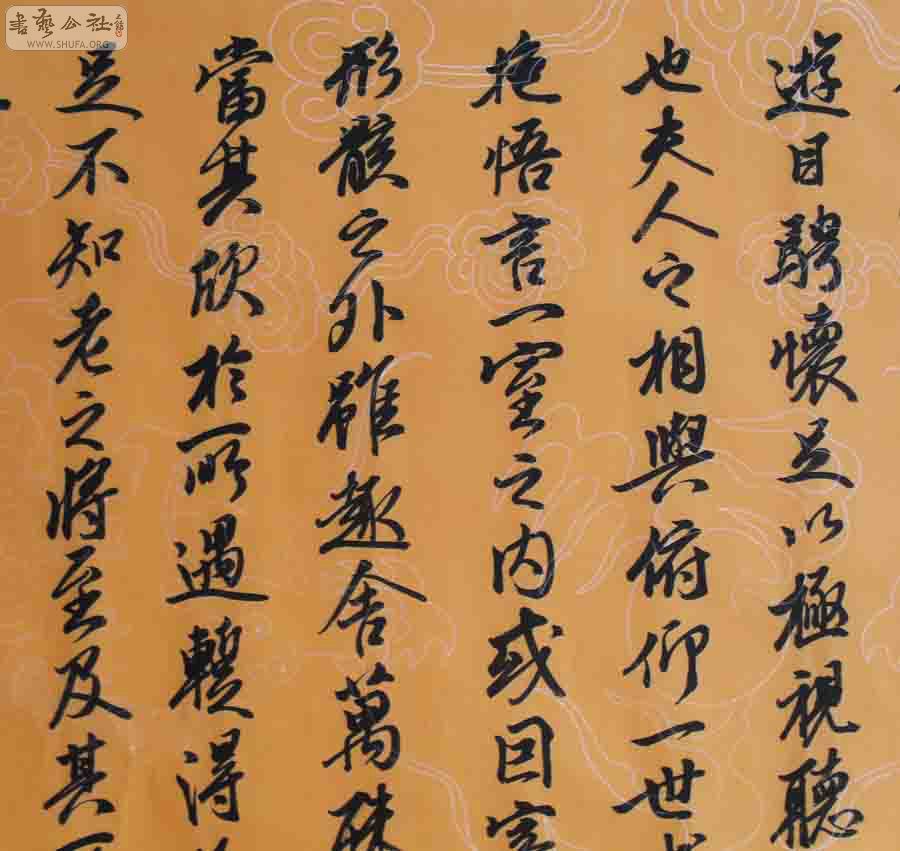 書藝公社
WWW.SHUFA.ORG
遊目騁懷足以極視聽
也夫人之相與俯仰一世
抱悟言一室之内或因寄
形骸之外雖趣舍萬殊
當其欣於所遇蹔得
足不知老之將至及其